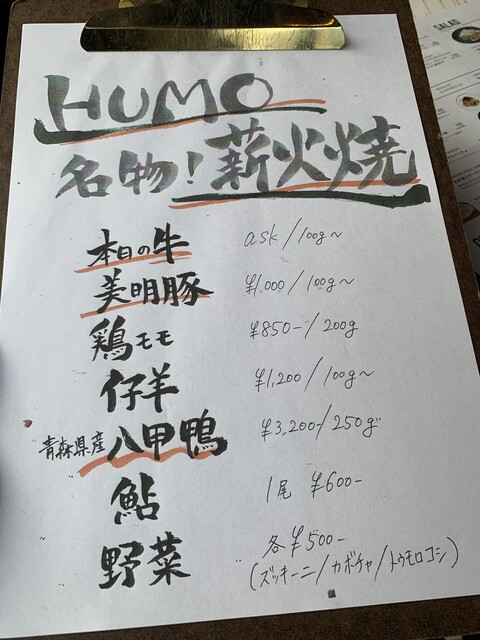 HUMO
名物!薪火焼
本日の牛 ask/100g~
美明豚 ¥1,000/100g~
鶏モモ ¥850-/200g
仔羊 ¥1,200/100g~
青森県産八甲鴨 ¥3,200-/250g
鮎 1尾 ¥600-
野菜 各¥500-
(ズッキーニ/カボチャ/トウモロコシ)
SALAD